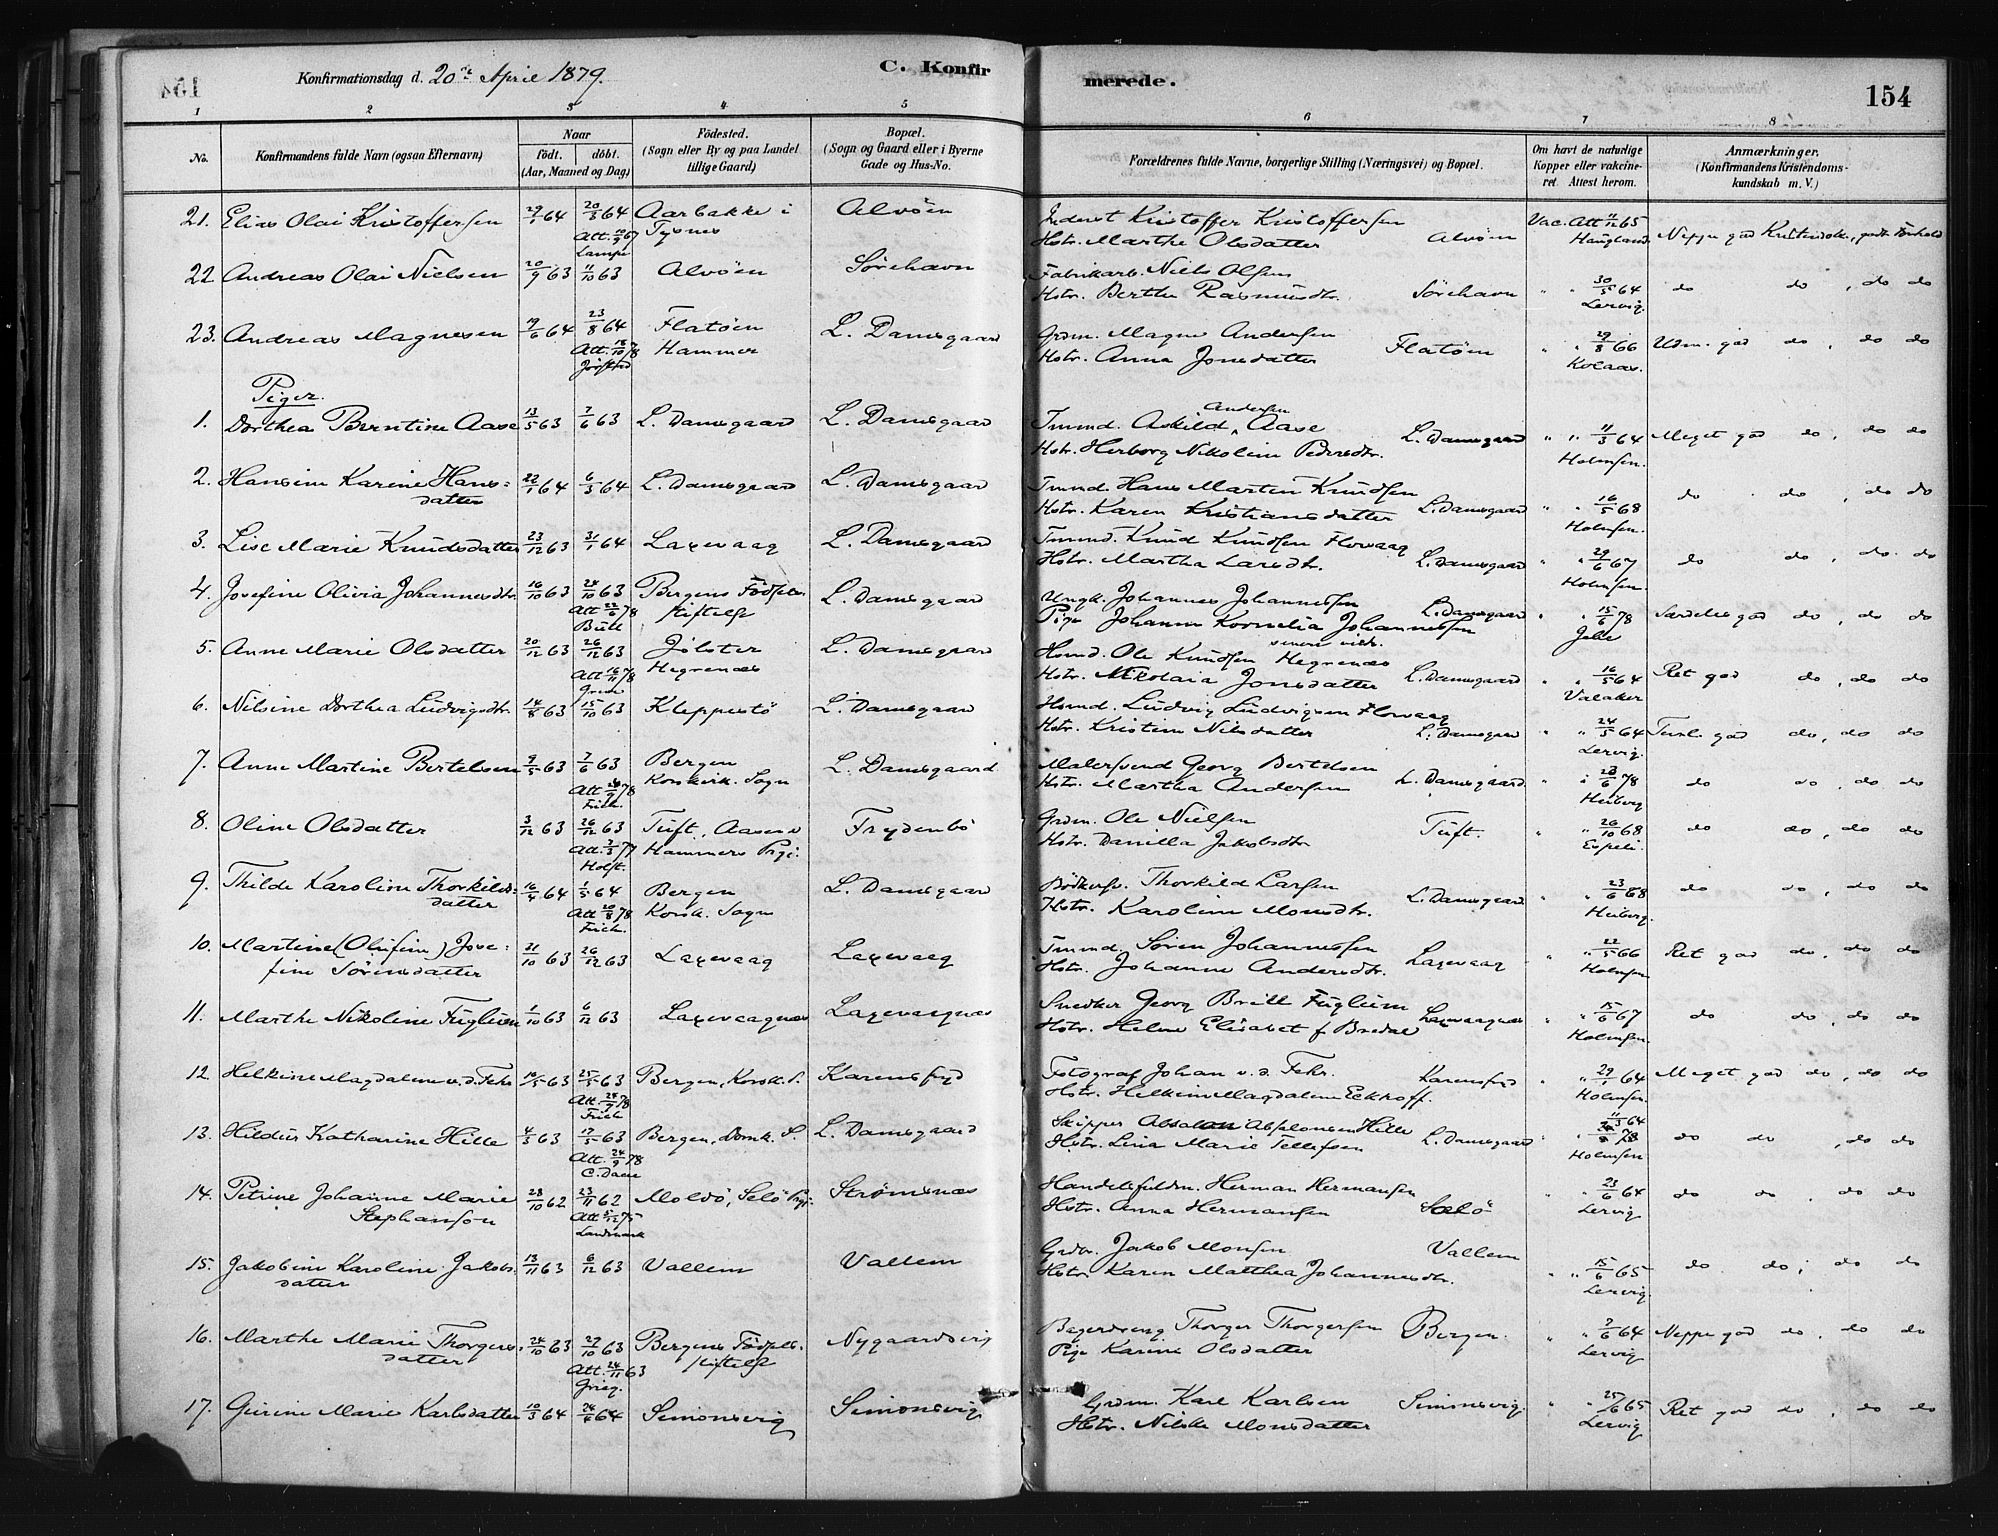 Konfirmationsdag d. 20de April 1879.
C. Konfirmerede.
154
1 2 3 4 5 6 7 8
No.
Konfirmandens fulde Navn (ogsaa Efternavn)
Naar
födt. döbt.
(Aar, Maaned og Dag)
Födested.
(Sogn eller By og paa Landet tillige Gaard)
Bopæl.
(Sogn og Gaard eller i Byerne Gade og Hus-No.
Forældrenes fulde Navne, borgerlige Stilling (Næringsvei) og Bopæl.
Om havt de naturlige Kopper eller vakcineret. Attest herom.
Anmærkninger.
(Konfirmandens Kristendomskundskab m. V.)
21. Elias Olai Kristoffersen 29/1 64 20/3 64 Aarbakke i Alvöen Inderst Kristoffer Kristoffersen Vac. Att 11/12 65
Att. 10/9 67 Tysnes Hstr. Marthe Olsdatter Alvöen Haugland
Lampe
22 Andreas Olai Nielsen 20/9 63 11/10 63 Alvöen Sörehavn Fabrikarb. Niels Olsen
Hstr. Berthe Rasmusdtr. Sörehavn " " 30/5 64 do do, do do
Lervig.
23. Andreas Magnesen 19/6 64 23/8 64 Flatöen L. Damsgaard Grdm. Magne Andersen
Att. 18/10 78 Hammer Hstr. Anna Jonsdatter Flatöen " " 29/8 66 Udm. god do, do do
Piger.
1. Dorthea Berntine Aase 13/5 63 7/6 63 L. Damsgaard L. Damsgaard Tmmd. Askild Andersen Aase
Hstr. Herborg Nikoline Pedersdtr. L. Damsgaard " " 11/3 64 Meget god do, do do
Holmsen.
2. Hansine Karine Hansdatter 22/1 64 6/3 64 L. Damsgaard L. Damsgaard Tmmd. Hans Martin Knudsen
Hstr. Karen Kristiansdatter L. Damsgaard " " 16/5 68 do do, do do
Holmsen.
3. Lise Marie Knudsdatter 23/12 63 31/1 64 Laxevaag L. Damsgaard Tmmd. Knud Knudsen Florvaag
Hstr. Martha Larsdtr. L. Damsgaard " 29/6 67 do do, do do
Holmsen.
4. Josefine Olivia Johannesdtr. 16/10 63 24/10 63 Bergens Födsels- L. Damsgaard Ungk. Johannes Johannessen
Att 22/6 78 stiftelse Pige Johanne Kornelia Johannessen L. Damsgaard " " 15/6 78 Særdeles god do, do do
Büll
5. Anne Marie Olsdatter 20/12 63 26/12 63 Jölster L. Damsgaard Hsmd. Ole Knudsen Hegrenæs
Att 16/11 78 Hegrenæs Hstr. Nikolaia Jonsdatter L. Damsgaard " " 16/5 64 Ret god do, do do
Valaker
6. Nilsine Dorthea Ludvigsdtr. 14/8 63 15/10 63 Kleppestö L. Damsgaard Hsmd. Ludvig Ludvigsen Florvaag
Hstr. Kristine Nilsdatter L. Damsgaard " " 24/5 64 god do, do do
Lervig.
7. Anne Martine Bertelsen 9/5 63 7/6 63 Bergen L. Damsgaard Malersvend Georg Bertelsen
Korskirk. Sogn Hstr. Martha Andersen L. Damsgaard " 28/6 78 do do, do do
Frich. Heiberg
8. Oline Olsdatter 3/12 63 26/12 63 Tuft, Aasene Frydenbö Grdm. Ole Nielsen
Att. 7/3 77 Hammers Prgj. Hstr. Danilla Jakobsdtr Tuft. " " 26/10 68 do do, do do
Holst. Espeli.
9. Thilde Karoline Thorkildsdatter 16/4 64 1/5 64 Bergen L. Damsgaard Bödkersv. Thorkild Larsen
Att 20/8 78 Korsk. Sogn Hstr. Karoline Monsdtr. L. Damsgaard " 23/6 68 do do, do do
Frich. Heiberg.
10. Martine (Olufine) Josefine Sörensdatter 31/10 63 26/12 63 Laxevaag Laxevaag Tmmd. Sören Johannessen
Hstr. Johanne Andersdtr. Laxevaag " 22/5 66 Ret god do, do do
Holmsen
11. Marthe Nikoline Fuglium 1/10 63 6/12 63 Laxevaagnes Laxevaagnes Snedker Georg Brüll Fuglium
Hstr. Helene Elisabet f Bredal Laxevaagnes " 15/6 67 do do, do do
Holmsen.
12 Helkine Magdalene v.d. Fehr 10/5 63 25/5 63 Bergen, Korsk. S. Karensfryd Fotograf Johan v. d. Fehr.
Att. 24/9 78 Hstr. Helkine Magdalene Eckhoff. Karensfryd " " 29/1 64 Meget god do, do do
Frich Holmsen.
13. Hildur Katharine Hille 4/3 63 17/5 63 Bergen, Domk. S. L. Damsgaard Skipper Absalon Absalonsen Hille 11/3 64
Att. 24/9 78 Hstr. Lina Marie Tellefsen L. Damsgaard do do, do do
Holmsen
14. Petrine Johanne Marie Stephanson 28/10 62 23/11 62 Moldö, Selö Prgj. Strömsnæs Handelsfuldm. Herman Hermansen
Att 5/12 75 Hstr. Anna Hermansen Selö " " 23/6 64 do do, do do
Landmark Lervig
15. Jakobine Karoline Jakobsdatter 13/11 63 6/12 63 Vallem Vallem Grdbr. Jakob Monsen Vallem
Hstr. Karen Matthea Johannesdtr. " " 15/6 65 do do, do do
Lervig.
16. Marthe Marie Thorgersdatter 24/10 63 29/10 63 Bergens Födsels- Nygaardsvig Bagerdreng Thorger Thorgersen Bergen.
Att. 24/11 63 stiftelse Pige Karine Olsdatter " " 7/6 64 Neppe god do, do do
Grieg. Lervig
17. Gurine Marie Karlsdatter 10/3 64 24/4 64 Simonsvig Simonsvig Grdm. Karl Karlsen Simonsvig.
Hstr. Nilske Monsdatter " " 25/6 65 Ret god do, do do
Lervig